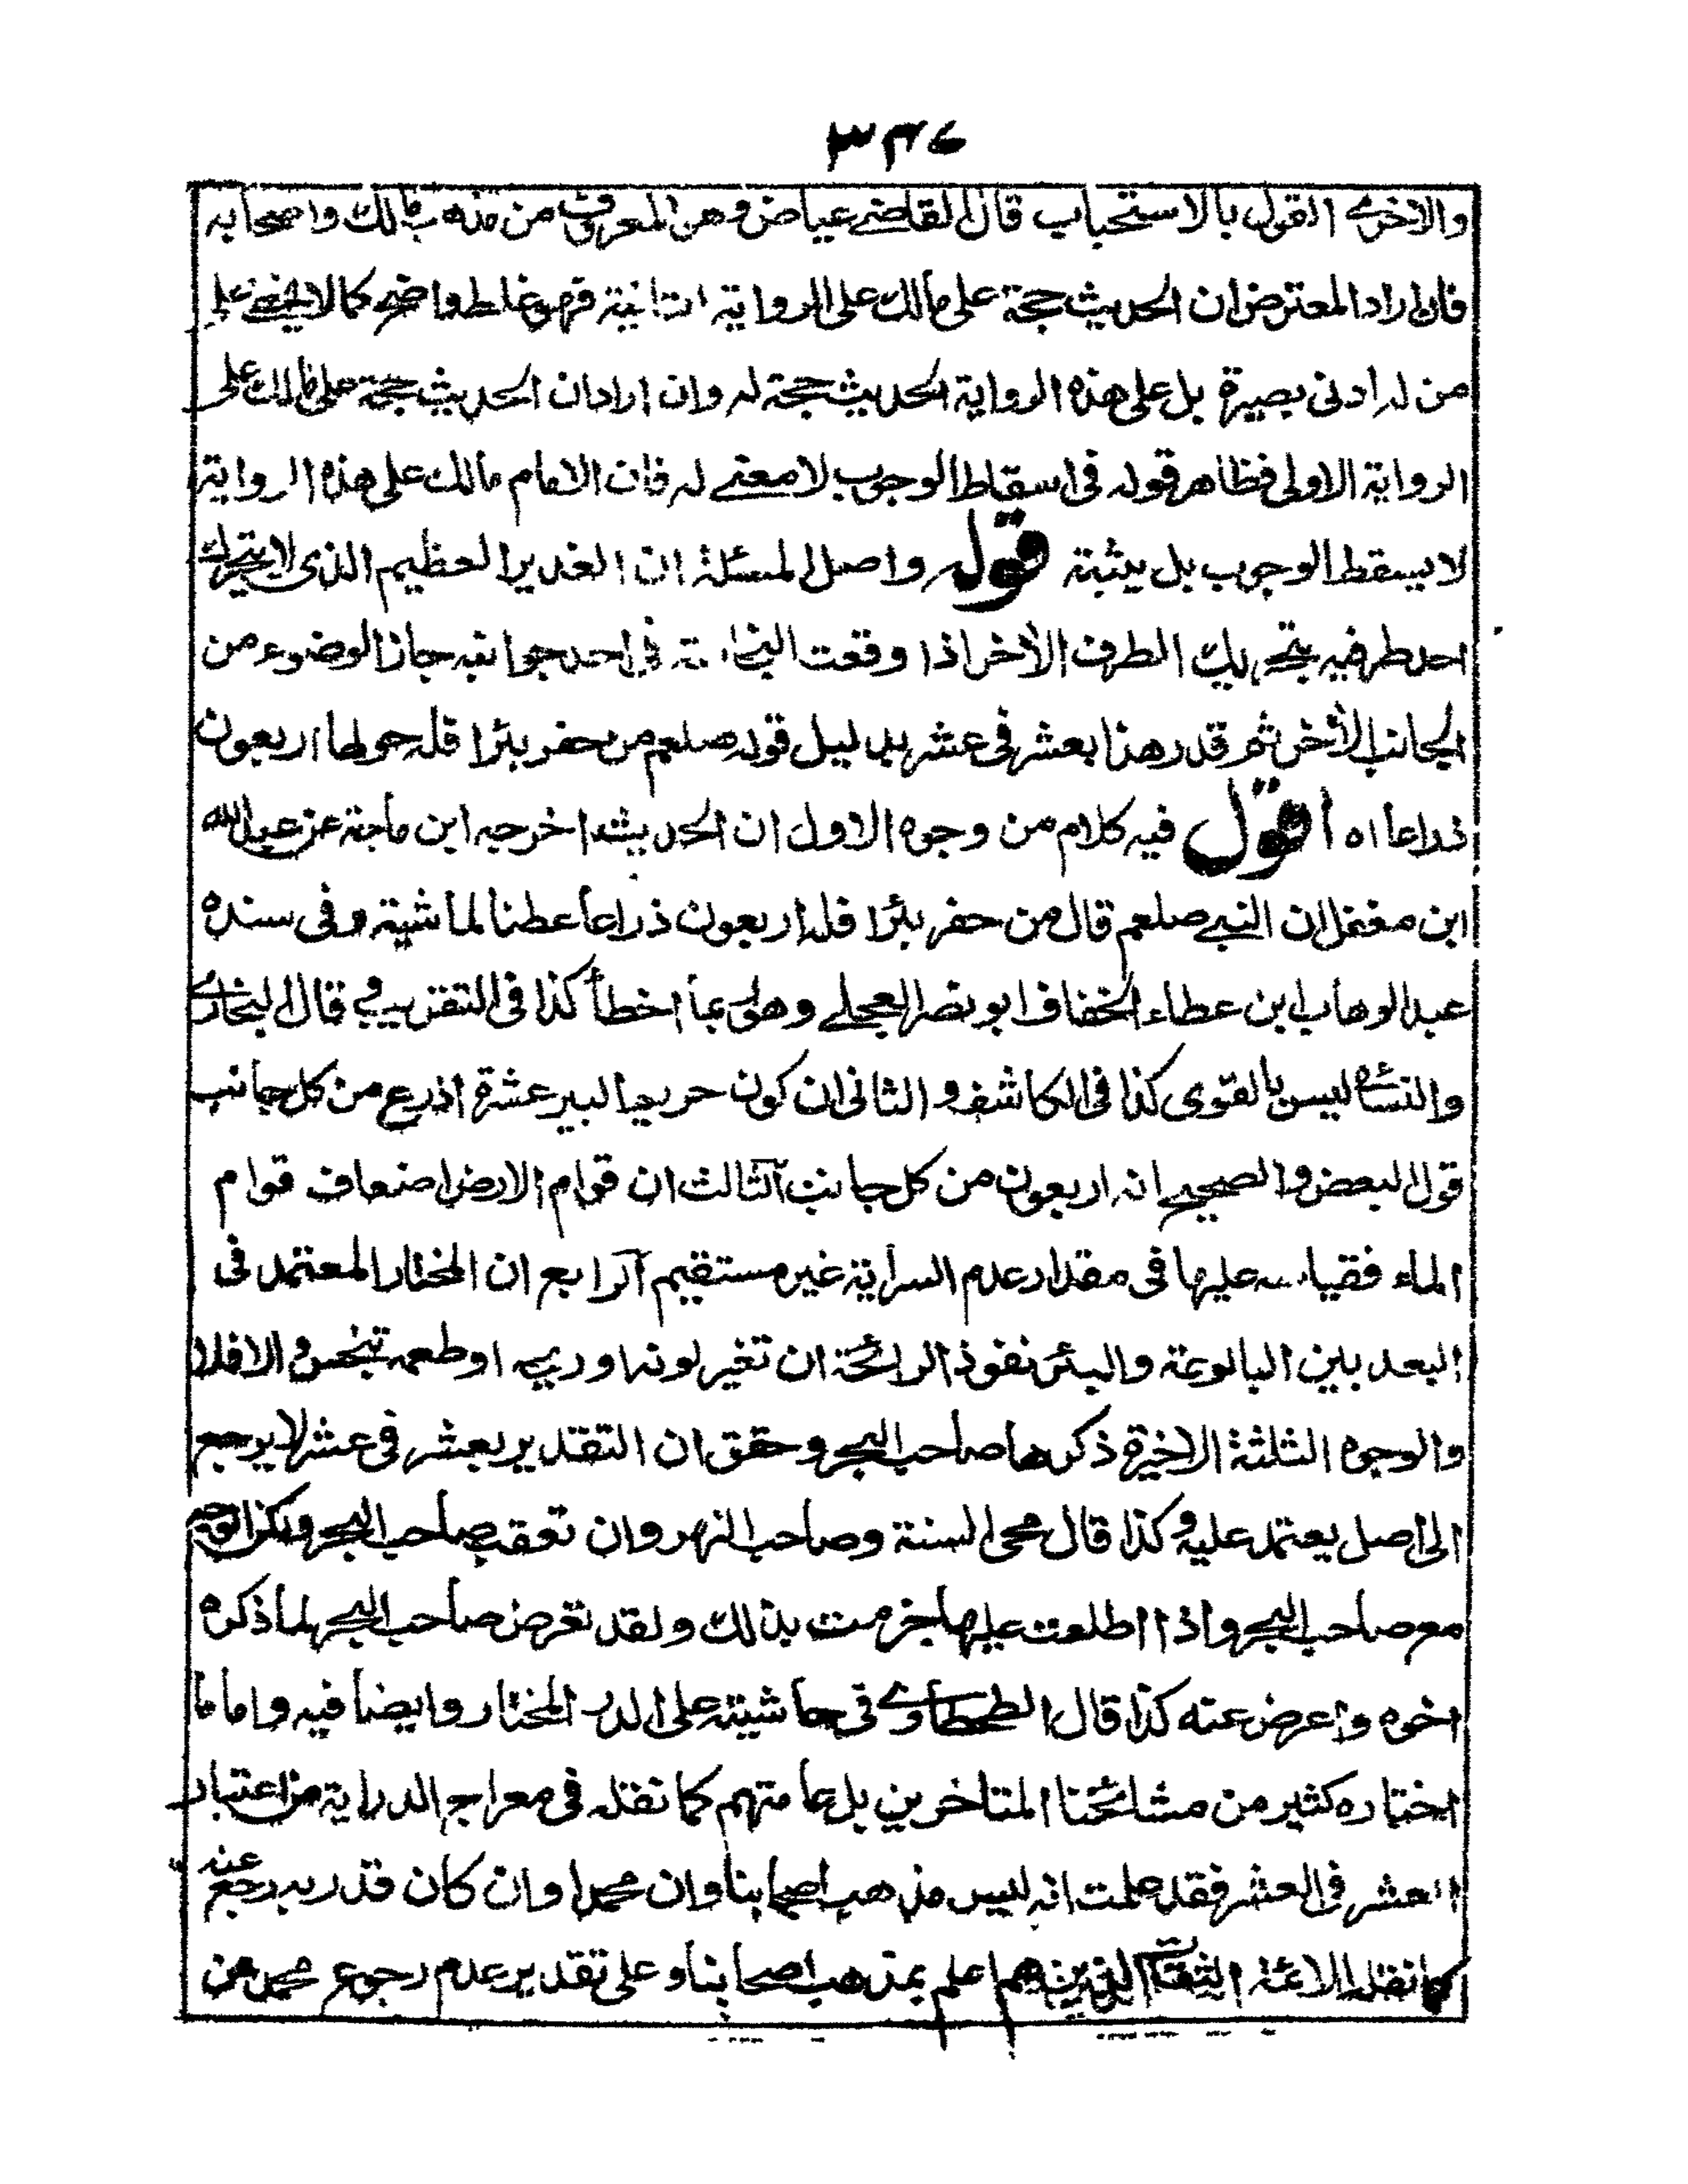 ٣٣٤
والاخرى القول بالاستحباب قال القاضي عياض وهو المعروف من مذهب مالك واصحابه
فان اراد المعترض ان الحديث حجة على مالك على الرواية الثانية فهو غلط واضح كما لا يخفى على
من له ادنى بصيرة بل على هذه الرواية الحديث حجة له وان اراد ان الحديث حجة على مالك على
الرواية الاولى فظاهر قوله في اسقاط الوجوب لا معنے له فان الامام مالك على هذه الرواية
لا يسقط الوجوب بل يثبته قوله واصل المسئلة ان الغدير العظيم الذي لا يتحرك
احد طرفيه بتحريك الطرف الاخر اذا وقعت النجاسة في احد جوانبه جاز الوضوء من
الجانب الأخر ثم قدر هذا بعشر في عشر بدليل قوله صلعم من حفر بئرا فله حولها اربعون
ذراعا اه أقول فيه كلام من وجوه الاول ان الحديث اخرجه ابن ماجة عن عبد الله
ابن مغفل ان النبے صلعم قال من حفر بئرا فله اربعون ذراعا عطنا لماشية وفى سنده
عبد الوهاب ابن عطاء الخفاف ابو نصر العجلے وهو ربما اخطأ كذا في التقريب قال البخارے
والنسائ ليس بالقوى كذا في الكاشف و الثانى ان كون حريم البير عشرة اذرع من كل جانب
قول البعض والصحيح انه اربعون من كل جانب الثالث ان قوام الارض اضعاف قوام
الماء فقياسه عليها في مقدار عدم السراية غير مستقيم الرابع ان المختار المعتمد في
البعد بين البالوعة والبئر نفوذ الرائحة ان تغير لونه او ريحه او طعمه تنجس والا فلا
والوجوه الثلثة الاخيرة ذكرها صاحب البحر وحقق ان التقدير بعشر في عشر لا يرجع
الى اصل يعتمد عليه وكذا قال محى السنة وصاحب النهر وان تعقب صاحب البحر ولكن الوجه
مع صاحب البحر واذا اطلعت عليها جزمت بذلك ولقد تعرض صاحب البحر لما ذكره
اخوه واعرض عنه كذا قال الطحطاوے في حاشيته على الدر المختار وايضا فيه واما ما
اختاره كثير من مشائخنا المتاخرين بل عامتهم كما نقله في معراج الدراية من اعتبار
العشر في العشر فقد علمت انه ليس مذهب اصحابنا وان محمدا وان كان قدر به رجع عنه
كما نقله الائمة الثقات الذين هم اعلم بمذهب اصحابنا وعلى تقدير عدم رجوع محمد من